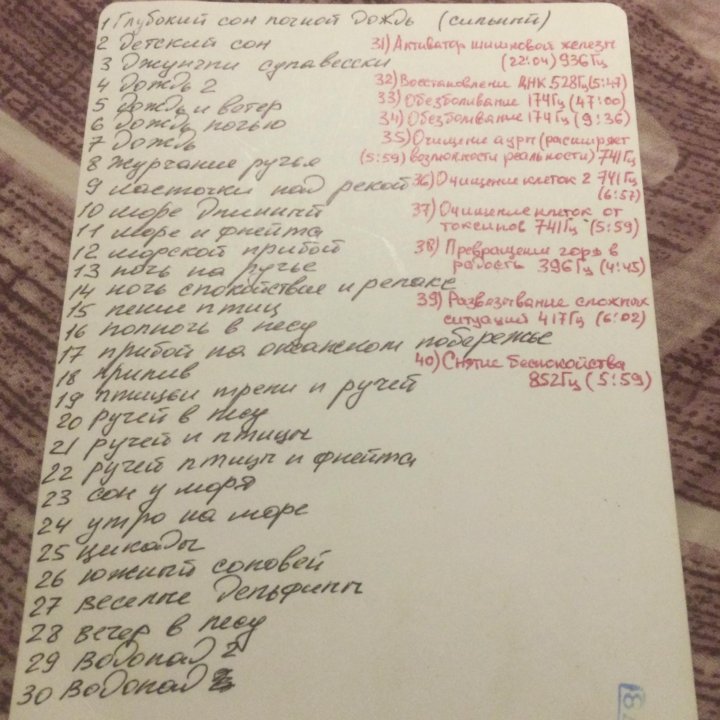 1 Глубокий сон ночной дождь (сильный)
2 детский сон
3 Джунгли сулавесски
4 дождь 2
5 дождь и ветер
6 дождь ночью
7 дождь
8 журчание ручья
9 ласточки над рекой
10 море длинный
11 море и флейта
12 морской прибой
13 ночь на ручье
14 ночь спокойствие и релакс
15 пение птиц
16 полночь в лесу
17 прибой на океанском побережье
18 прилив
19 птицьи трели и ручей
20 ручей в лесу
21 ручей и птицы
22 ручей птицы и флейта
23 сон у моря
24 утро на море
25 цикады
26 южный соловей
27 веселые дельфины
28 вечер в лесу
29 водопад 2
30 водопад
31) Активатор шишковой железы
(22:04) 936Гц
32) Восстановлени ДНК 528Гц (5:47)
33) Обезболивание 174Гц (47:00)
34) Обезболивание 174Гц (9:36)
35) Очищение ауры (расширяет
(5:59) возможности реальности) 741Гц
36) Очищение клеток 2 741Гц
(6:57)
37) Очищение клеток от
токсинов 741Гц (5:59)
38) Превращении горя в
радость 396Гц (4:45)
39) Развязывание сложных
ситуаций 417Гц (6:02)
40) Снятие беспокойства
852Гц (5:59)